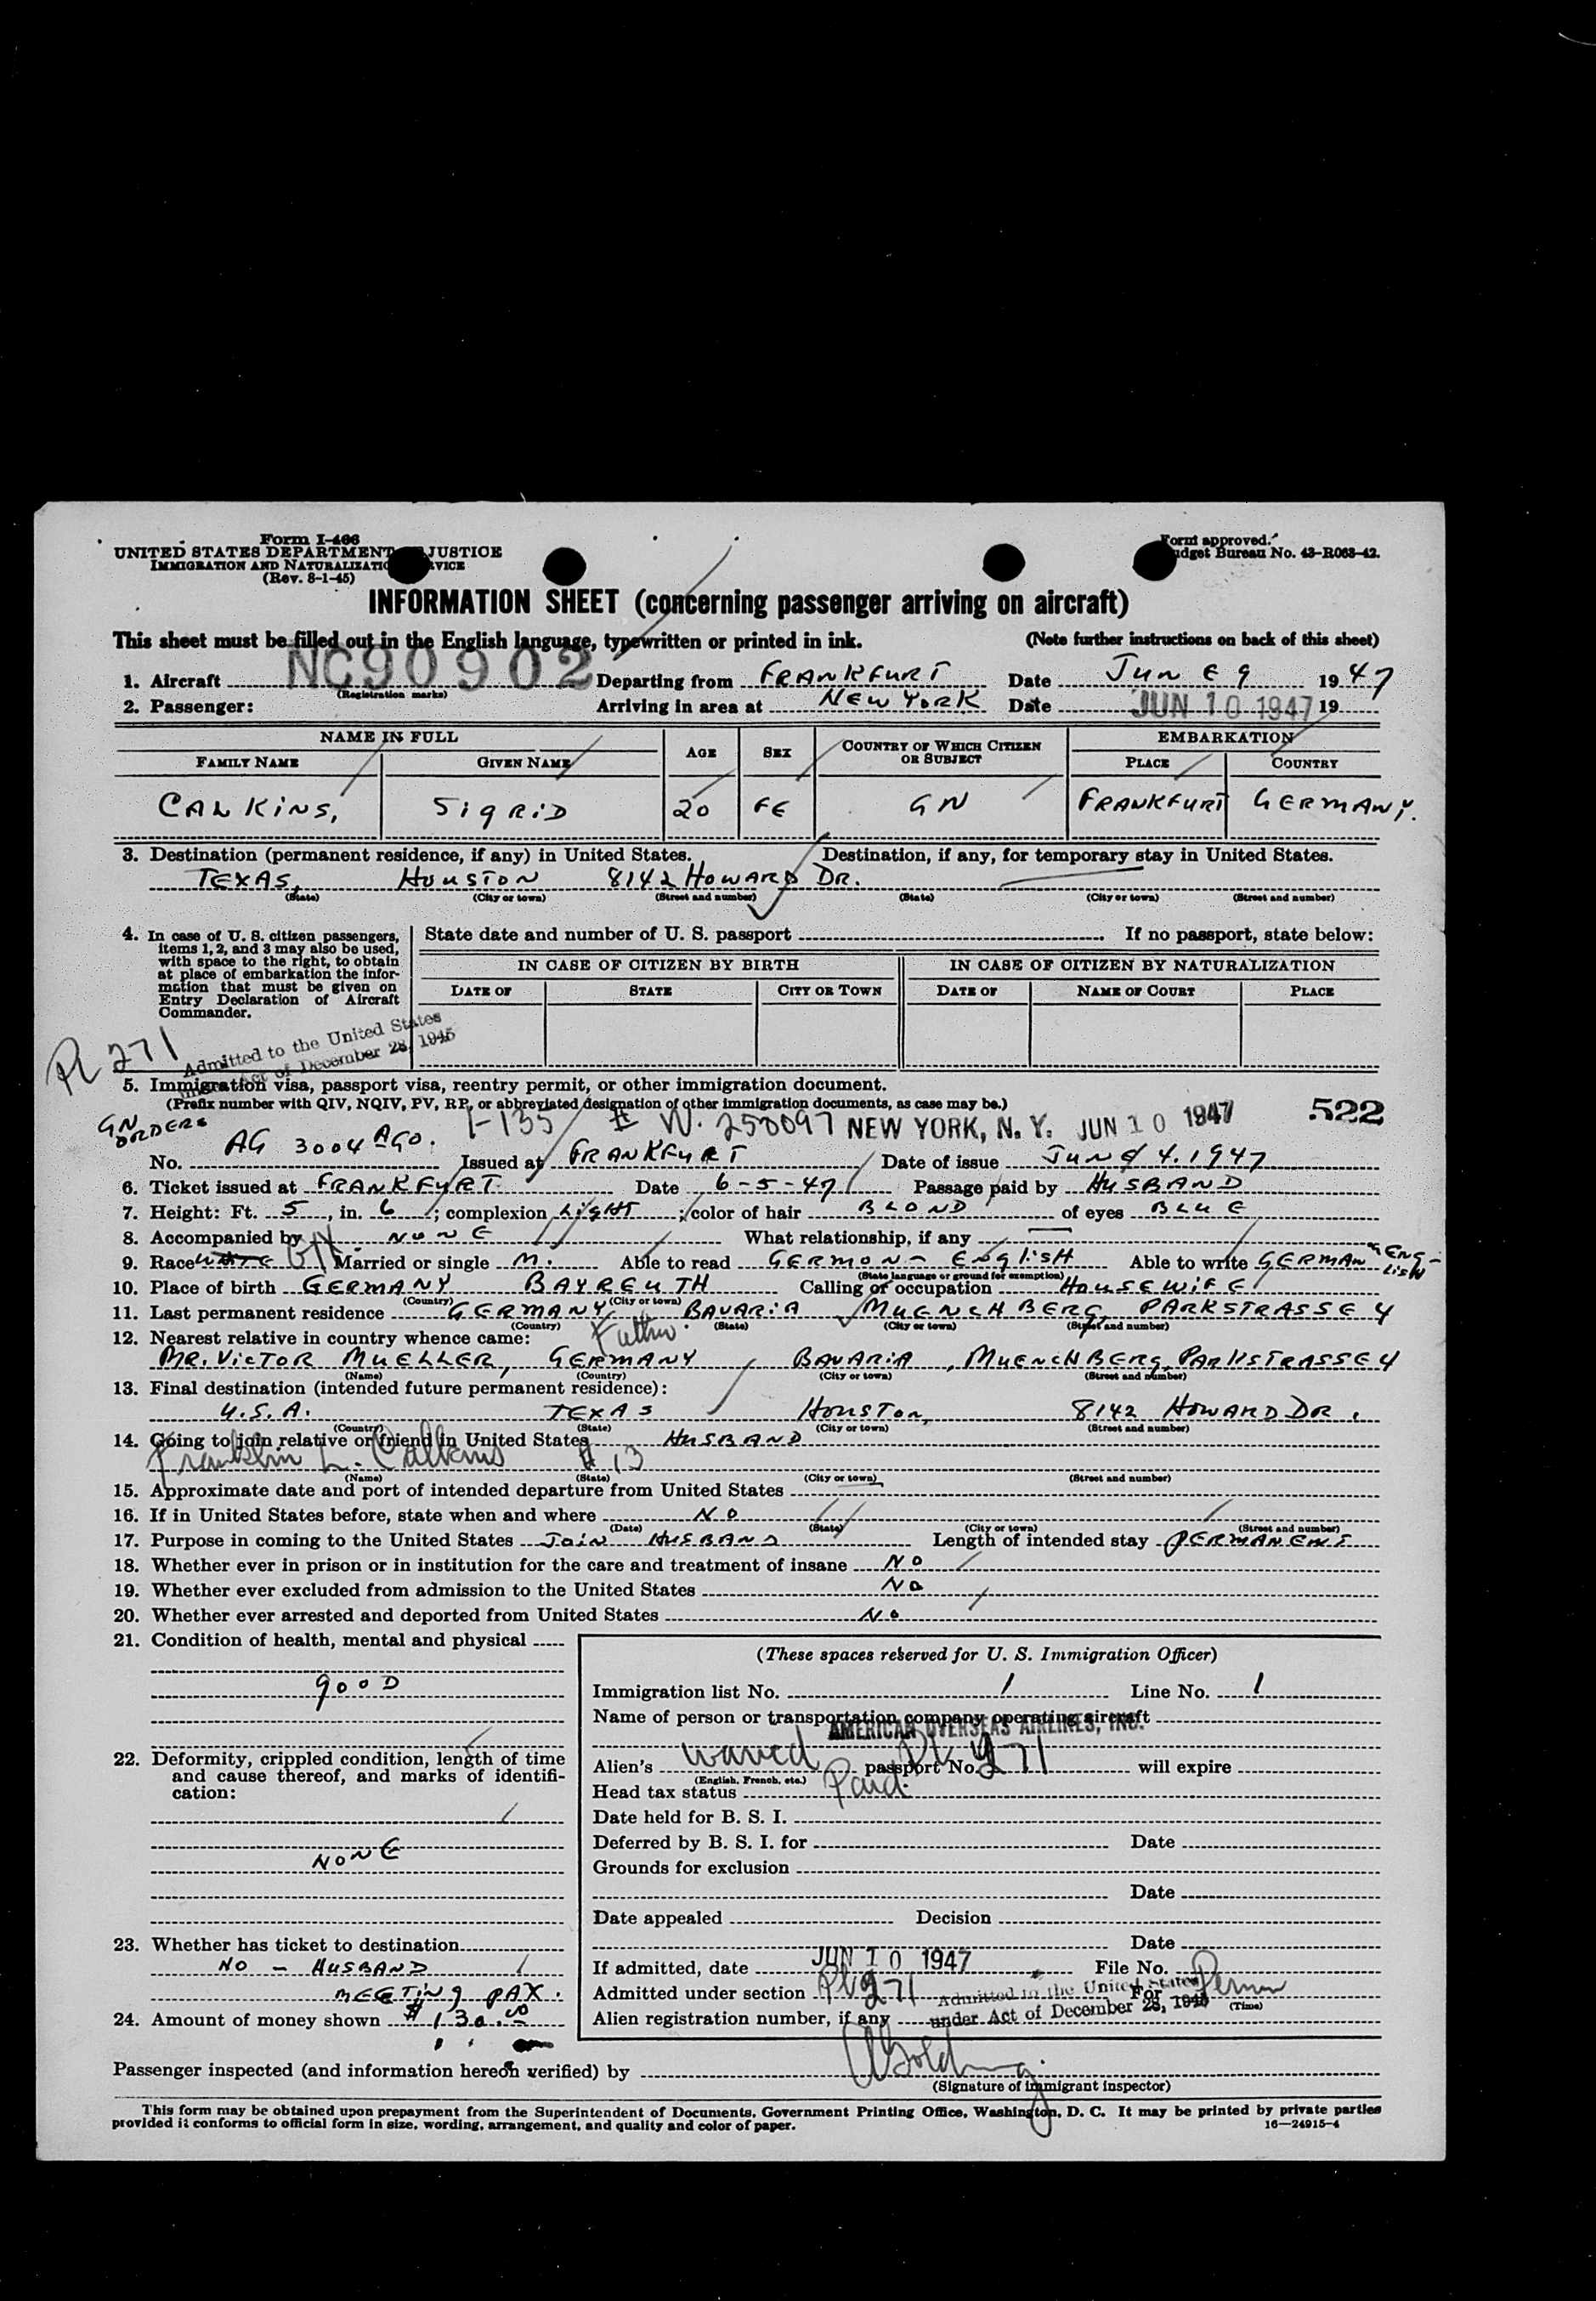 Form I-466
UNITED STATES DEPARTMENT JUSTICE
IMMIGRATION AND NATURALIZATION SERVICE
(Rev. 8-1-45)
Form approved.
Budget Bureau No. 43-R063-42.
INFORMATION SHEET (concerning passenger arriving on aircraft)
This sheet must be filled out in the English language, typewritten or printed in ink. (Note further instructions on back of this sheet)
1. Aircraft NC90902 Departing from FRANKFURT Date JUNE 9 1947
(Registration marks)
2. Passenger: Arriving in area at NEW YORK Date JUN 10 1947 19
NAME IN FULL AGE SEX COUNTRY OF WHICH CITIZEN OR SUBJECT EMBARKATION
FAMILY NAME GIVEN NAME PLACE COUNTRY
CALKINS, SIGRID 20 FE GN FRANKFURT GERMANY.
3. Destination (permanent residence, if any) in United States. Destination, if any, for temporary stay in United States.
TEXAS, HOUSTON 8142 HOWARD DR.
(State) (City or town) (Street and number) (State) (City or town) (Street and number)
4. In case of U. S. citizen passengers, items 1, 2, and 3 may also be used, with space to the right, to obtain at place of embarkation the information that must be given on Entry Declaration of Aircraft Commander.
State date and number of U. S. passport If no passport, state below:
IN CASE OF CITIZEN BY BIRTH IN CASE OF CITIZEN BY NATURALIZATION
DATE OF STATE CITY OR TOWN DATE OF NAME OF COURT PLACE
PL 271
Admitted to the United States
Act of December 28, 1945
5. Immigration visa, passport visa, reentry permit, or other immigration document.
(Prefix number with QIV, NQIV, PV, RP, or abbreviated designation of other immigration documents, as case may be.)
GN ORDERS I-135 # W. 250097 NEW YORK, N. Y. JUN 10 1947 522
No. AG 3004 AGO. Issued at FRANKFURT Date of issue JUNE 4. 1947
6. Ticket issued at FRANKFURT Date 6-5-47 Passage paid by HUSBAND
7. Height: Ft. 5, in. 6; complexion LIGHT; color of hair BLOND of eyes BLUE
8. Accompanied by NONE What relationship, if any
9. Race WHITE Married or single M. Able to read GERMON - ENGLISH Able to write GERMAN ENGLISH
(State language or ground for exemption)
10. Place of birth GERMANY BAYREUTH Calling or occupation HOUSEWIFE
(Country) (City or town)
11. Last permanent residence GERMANY BAVARIA MUENCHBERG PARKSTRASSE 4
(Country) (State) (City or town) (Street and number)
12. Nearest relative in country whence came: Father.
MR. VICTOR MUELLER, GERMANY BAVARIA, MUENCHBERG, PARKSTRASSE 4
(Name) (Country) (City or town) (Street and number)
13. Final destination (intended future permanent residence):
U.S.A. TEXAS HOUSTON, 8142 HOWARD DR.
(Country) (State) (City or town) (Street and number)
14. Going to join relative or friend in United States HUSBAND
Franklin L. Calkins # 13
(Name) (State) (City or town) (Street and number)
15. Approximate date and port of intended departure from United States
16. If in United States before, state when and where NO
(Date) (State) (City or town) (Street and number)
17. Purpose in coming to the United States JOIN HUSBAND Length of intended stay PERMANENT
18. Whether ever in prison or in institution for the care and treatment of insane NO
19. Whether ever excluded from admission to the United States NO
20. Whether ever arrested and deported from United States NO
21. Condition of health, mental and physical
GOOD
22. Deformity, crippled condition, length of time and cause thereof, and marks of identification:
NONE
23. Whether has ticket to destination
NO - HUSBAND
MEETING PAX.
24. Amount of money shown $130.00
(These spaces reserved for U. S. Immigration Officer)
Immigration list No. 1 Line No. 1
Name of person or transportation company operating aircraft
AMERICAN OVERSEAS AIRLINES, INC.
Alien's waved passport No. PL 271 will expire
(English, French, etc.)
Head tax status Paid.
Date held for B. S. I.
Deferred by B. S. I. for Date
Grounds for exclusion
Date
Date appealed Decision
Date
If admitted, date JUN 10 1947 File No.
Admitted under section PL 271 For Perm
(Time)
Admitted to the United States
under Act of December 28, 1945
Alien registration number, if any
Passenger inspected (and information hereon verified) by
(Signature of immigrant inspector)
This form may be obtained upon prepayment from the Superintendent of Documents, Government Printing Office, Washington, D. C. It may be printed by private parties
provided it conforms to official form in size, wording, arrangement, and quality and color of paper. 16—24915-4